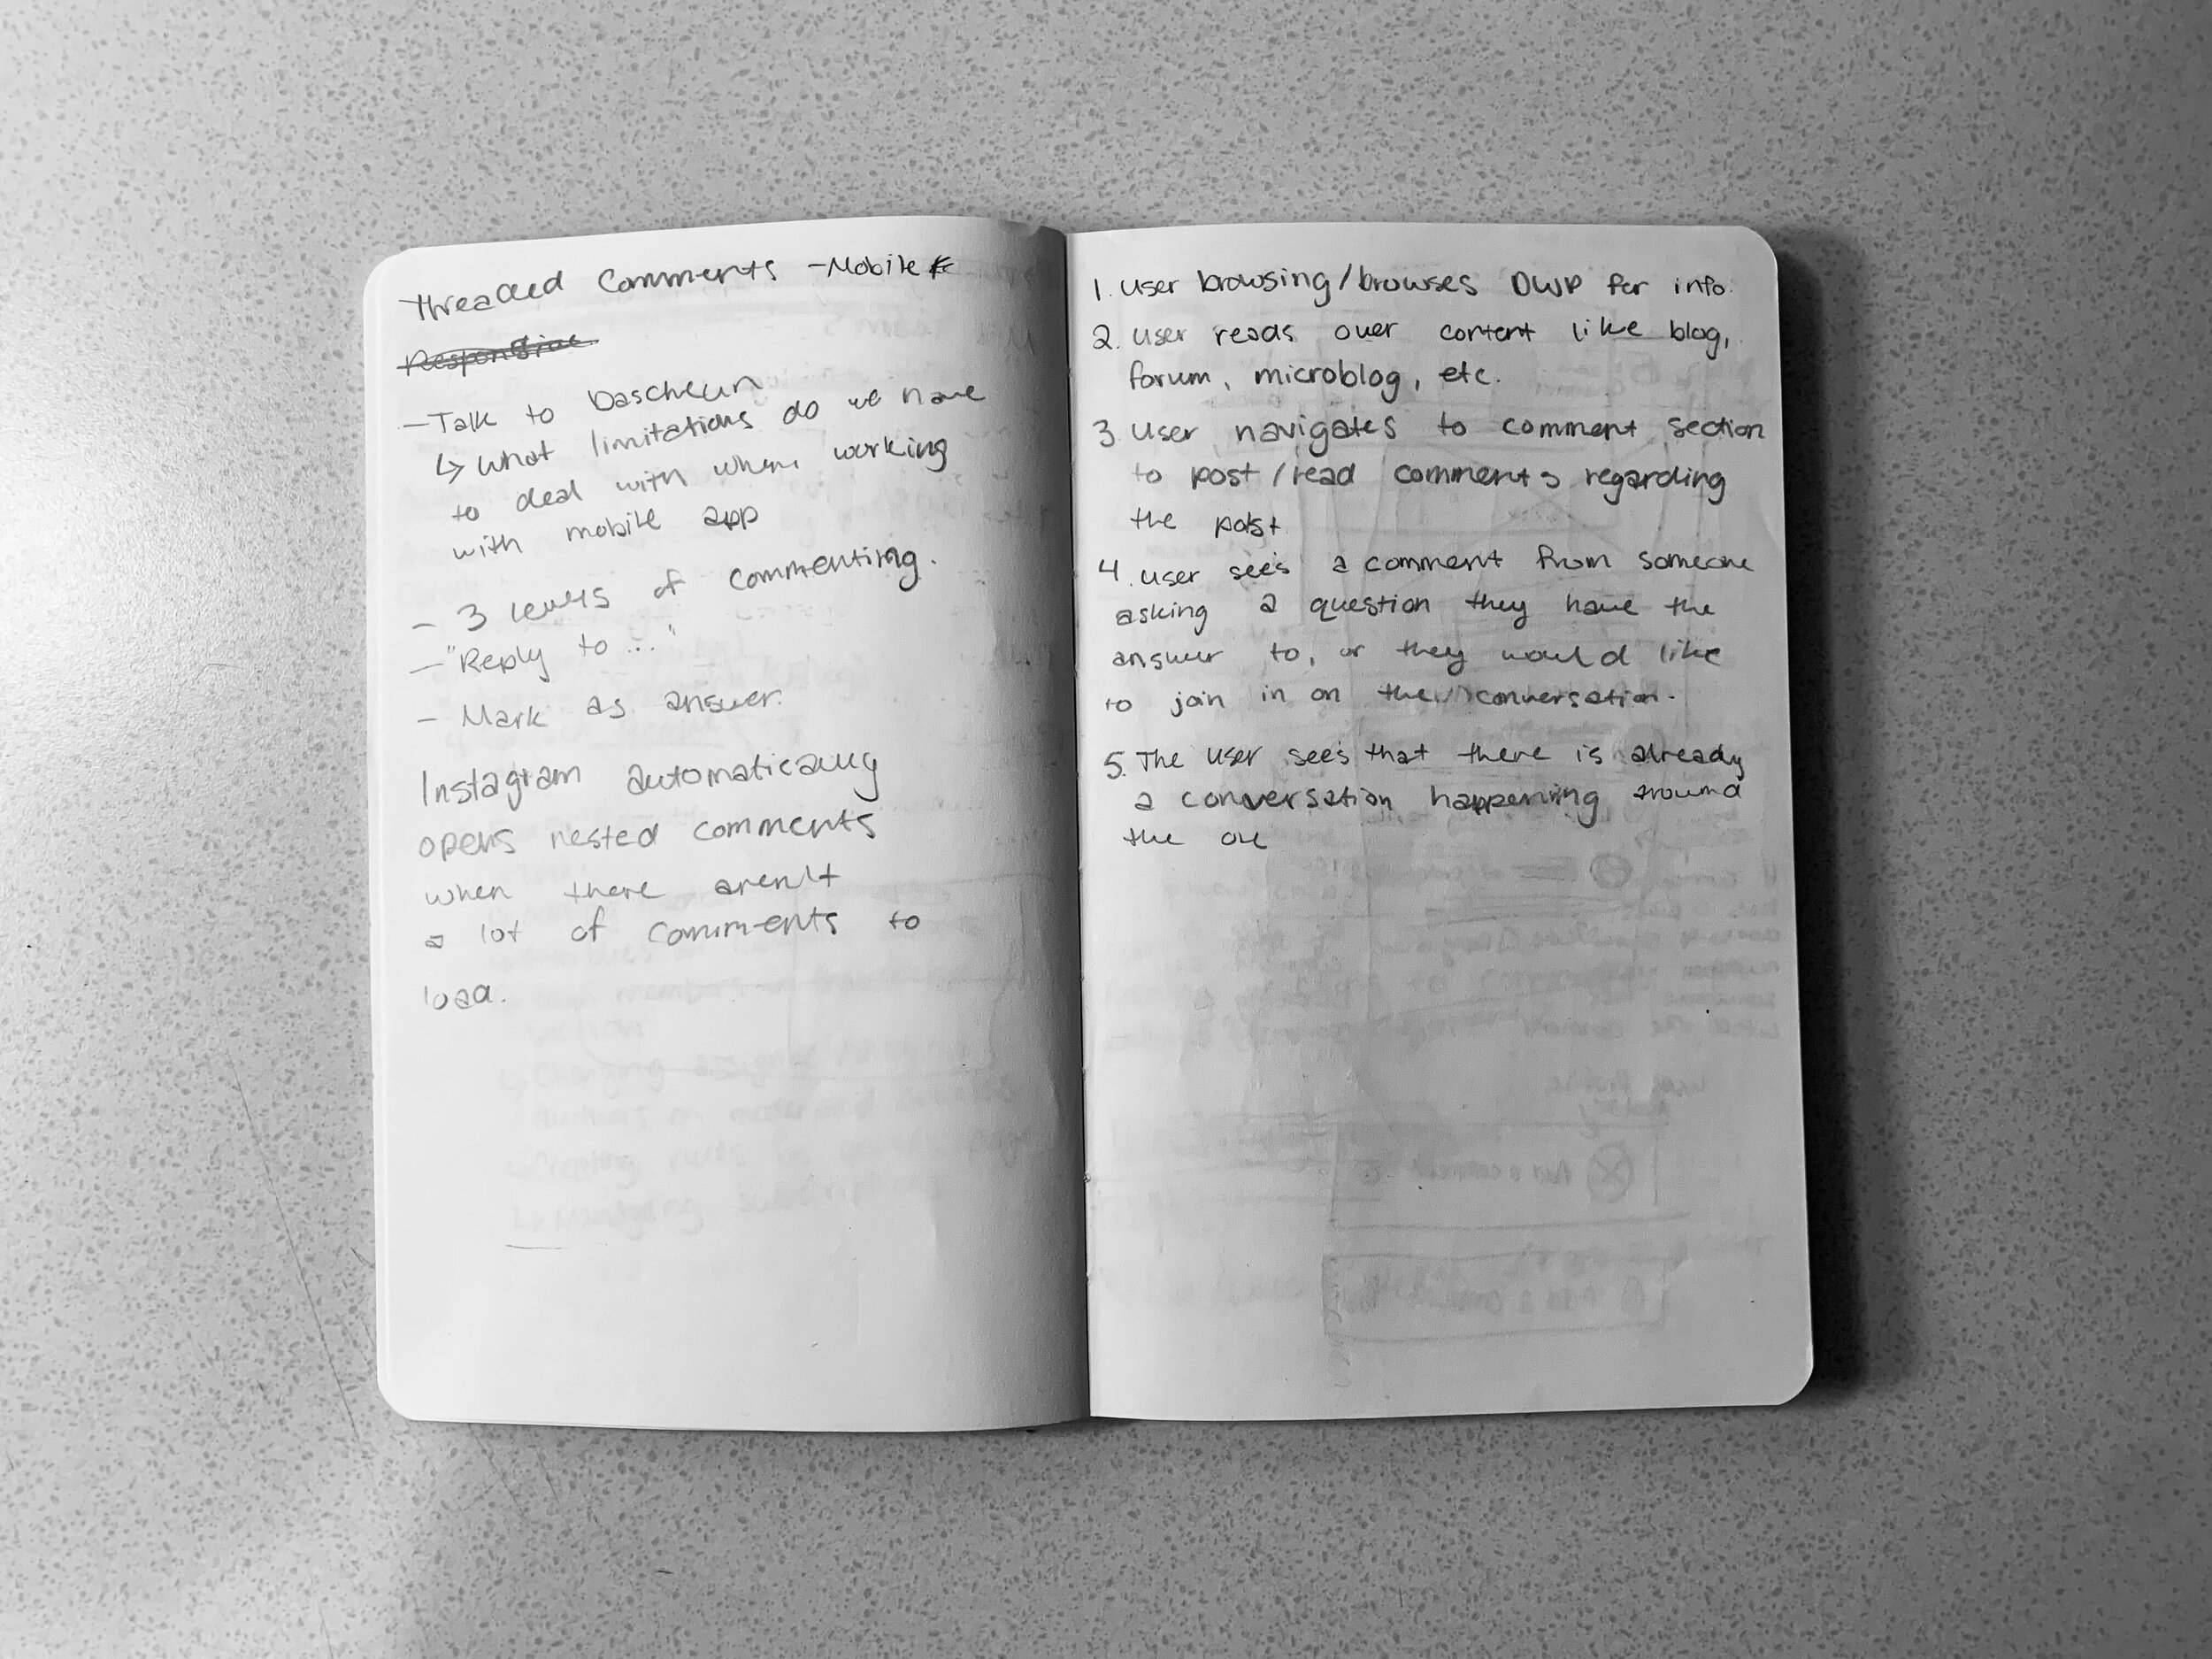 Threaded Comments - Mobile
Responsive
- Talk to Dascheun
↳ What limitations do we have
to deal with when working
with mobile app
- 3 levels of commenting.
- "Reply to ..."
- Mark as answer.
Instagram automatically
opens nested comments
when there aren't
a lot of comments to
load.
1. User browsing/browses DWP for info.
2. User reads over content like blog,
forum, microblog, etc.
3. User navigates to comment section
to post/read comments regarding
the post
4. User sees a comment from someone
asking a question they have the
answer to, or they would like
to join in on the conversation.
5. The user sees that there is already
a conversation happening around
the